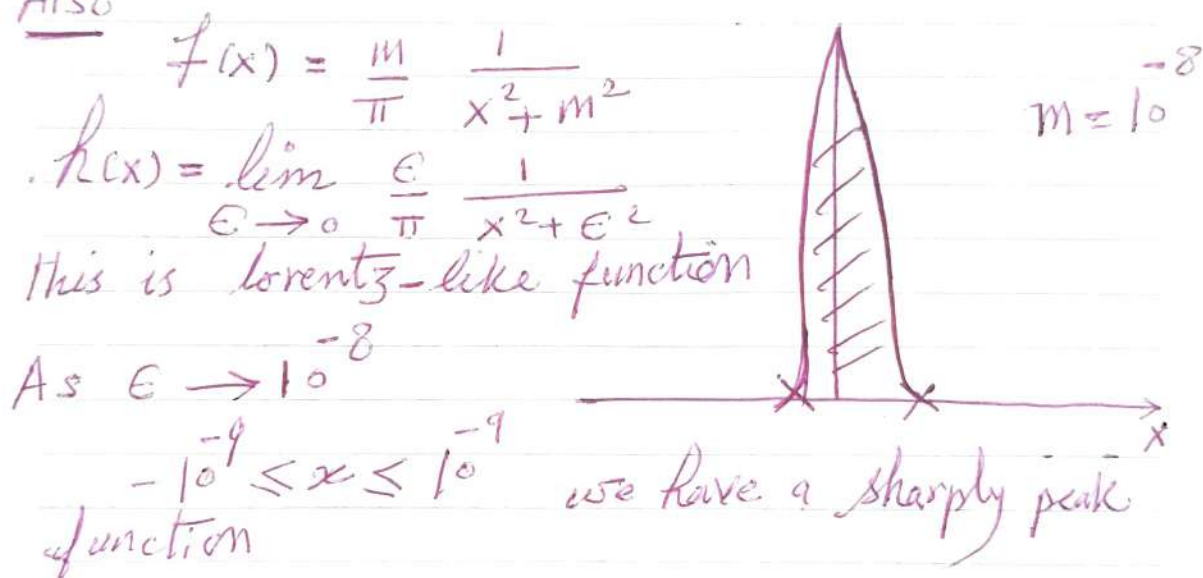 Also
f(x) = m/π 1/(x² + m²)
m = 10⁻⁸
. h(x) = lim ε→0 ε/π 1/(x² + ε²)
this is lorentz-like function
As ε → 10⁻⁸
x
-10⁻⁹ ≤ x ≤ 10⁻⁹ we have a sharply peak
function